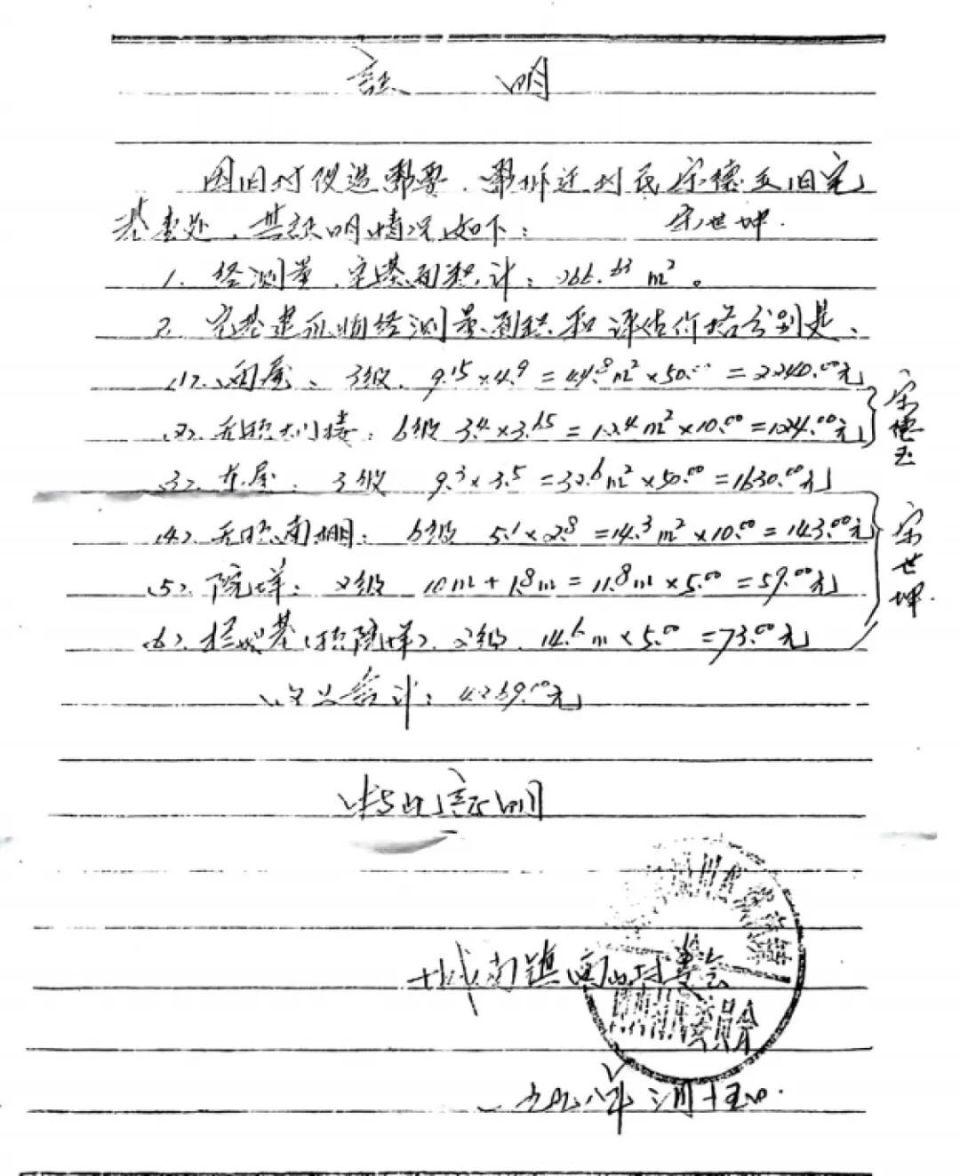 证 明
因旧村改造需要，需拆迁村民宋德玉旧宅
宋世坤.
基壹处，其证明情况如下：
1. 经测量，宅基面积计：266.63 m²。
2. 宅基建筑物经测量面积和评估价格分别是：
(1). 西屋：3级. 9.15×4.9=44.8m²×50.00=2240.00元
(2). 无顶大门楼：6级 3.4×3.65=12.4m²×10.00=124.00元
宋德玉
(3). 东屋：3级 9.3×3.5=32.6m²×50.00=1630.00元
(4). 无顶南棚：6级 5.1×2.8=14.3m²×10.00=143.00元
(5). 院墙：2级 10m+1.8m=11.8m×5.00=59.00元
宋世坤.
(6). 拦垻基(按院墙). 2级. 14.6m×5.00=73.00元
以上合计：4269.00元
特此证明
城南镇 村委会
委员会
一九九八年三月十五日.